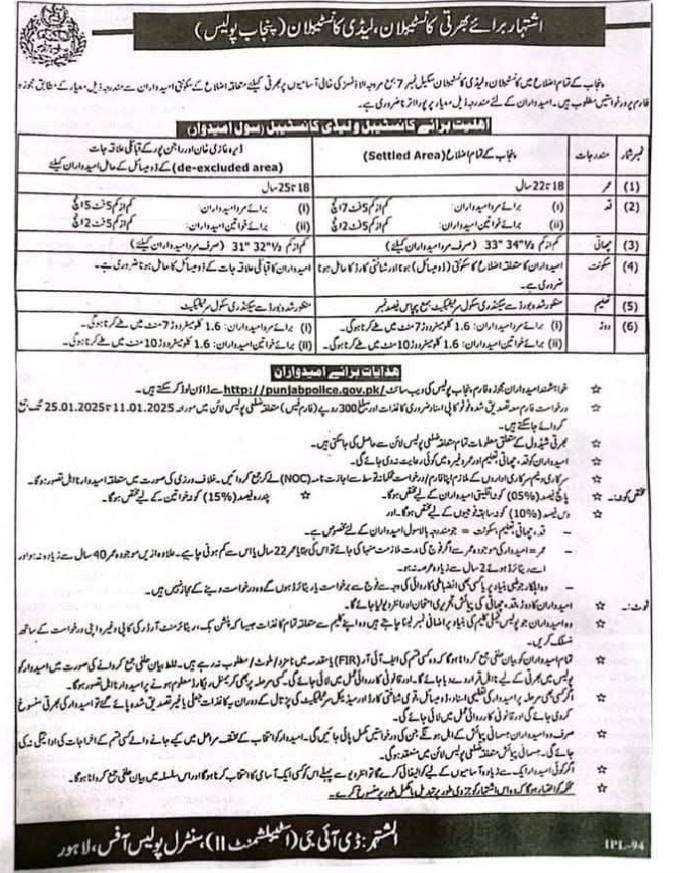 اشتہار برائے بھرتی کانسٹیبلان، لیڈی کانسٹیبلان (پنجاب پولیس)
پنجاب کے تمام اضلاع میں کانسٹیبلان و لیڈی کانسٹیبلان سکیل نمبر 7 بمع مروجہ الاؤنسز کی خالی آسامیوں پر بھرتی کیلئے متعلقہ اضلاع کے سکونتی امیدواران سے مندرجہ ذیل معیار کے مطابق مجوزہ
فارم پر درخواستیں مطلوب ہیں۔ امیدواران کے لئے مندرجہ ذیل معیار پر پورا اترنا ضروری ہے۔
اہلیت برائے کانسٹیبل و لیڈی کانسٹیبل (سول امیدوار)
نمبر شمار مندرجات پنجاب کے تمام اضلاع (Settled Area) ڈیرہ غازی خان اور راجن پور کے قبائلی علاقہ جات
(de-excluded area) کے ڈومیسائل کے حامل امیدواران کیلئے
(1) عمر 18 تا 22 سال 18 تا 25 سال
(2) قد (i) برائے مرد امیدواران: کم از کم 5 فٹ 7 انچ (i) برائے مرد امیدواران: کم از کم 5 فٹ 5 انچ
(ii) برائے خواتین امیدواران: کم از کم 5 فٹ 2 انچ (ii) برائے خواتین امیدواران: کم از کم 5 فٹ 2 انچ
(3) چھاتی کم از کم 33" 34½" (صرف مرد امیدواران کیلئے) کم از کم 31" 32½" (صرف مرد امیدواران کیلئے)
(4) سکونت امیدواران کا متعلقہ اضلاع کا سکونتی (ڈومیسائل) ہونا اور شناختی کارڈ کا حامل ہونا امیدواران کا قبائلی علاقہ جات کے ڈومیسائل کا حامل ہونا ضروری ہے۔
ضروری ہے۔
(5) تعلیم منظور شدہ بورڈ سے سیکنڈری سکول سرٹیفکیٹ بمع پچاس فیصد نمبر منظور شدہ بورڈ سے سیکنڈری سکول سرٹیفکیٹ
(6) دوڑ (i) برائے مرد امیدواران: 1.6 کلومیٹر دوڑ 7 منٹ میں طے کرنا ہوگی۔ (i) برائے مرد امیدواران: 1.6 کلومیٹر دوڑ 7 منٹ میں طے کرنا ہوگی۔
(ii) برائے خواتین امیدواران: 1.6 کلومیٹر دوڑ 10 منٹ میں طے کرنا ہوگی۔ (ii) برائے خواتین امیدواران: 1.6 کلومیٹر دوڑ 10 منٹ میں طے کرنا ہوگی۔
ہدایات برائے امیدواران
☆ خواہشمند امیدواران مجوزہ فارم پنجاب پولیس کی ویب سائٹ http://punjabpolice.gov.pk/ سے ڈاؤن لوڈ کر سکتے ہیں۔
☆ درخواست فارم معہ تصدیق شدہ فوٹو کاپی اسناد ضروری کاغذات اور مبلغ 300 روپے (فارم فیس) متعلقہ ضلعی پولیس لائن میں مورخہ 11.01.2025 تا 25.01.2025 تک جمع
کروائے جاسکتے ہیں۔
☆ بھرتی شیڈول کے متعلق معلومات تمام متعلقہ ضلعی پولیس لائن سے حاصل کی جاسکتی ہیں۔
☆ امیدواران کو قد، چھاتی، تعلیم اور عمر وغیرہ میں کوئی رعایت نہ دی جائے گی۔
☆ سرکاری و نیم سرکاری اداروں کے ملازم اپنا فارم / درخواست محکمانہ توسط سے اجازت نامہ (NOC) لے کر جمع کروائیں۔ خلاف ورزی کی صورت میں متعلقہ امیدوار نااہل تصور ہوگا۔
مختص کوٹہ:۔ ☆ پانچ فیصد (05%) کوٹہ اقلیتی امیدواران کے لیے مختص ہوگا۔ ☆ پندرہ فیصد (15%) کوٹہ خواتین کے لیے مختص ہوگا۔
☆ دس فیصد (10%) کوٹہ سابقہ فوجیوں کے لیے مختص ہوگا۔ اور
– قد، چھاتی، تعلیم، سکونت = جو مندرجہ بالا سول امیدواران کے لئے مخصوص ہے۔
– عمر = امیدوار کی موجودہ عمر سے اگر فوج کی مدت ملازمت منہا کی جائے تو اس کی بقایا عمر 22 سال یا اس سے کم ہونی چاہیے۔ علاوہ ازیں موجودہ عمر 40 سال سے زیادہ نہ ہو اور
اسے ریٹائرڈ ہوئے 2 سال سے زیادہ عرصہ نہ ہو۔
– وہ اہلکار جو طبی بنیاد پر یا کسی بھی انضباطی کاروائی کی وجہ سے فوج سے برخواست یا ریٹائرڈ ہوں گے وہ درخواست دینے کے مجاز نہیں ہیں۔
نوٹ:۔ ☆ امیدواران کا دوڑ، قد، چھاتی کی پیمائش، تحریری امتحان اور انٹرویو لیا جائے گا۔
☆ وہ امیدواران جو پولیس فیملی کلیم کی بنیاد پر اضافی نمبر لینا چاہتے ہیں وہ اپنے کلیم سے متعلقہ تمام کاغذات جیسا کہ پنشن بک، ریٹائرمنٹ آرڈر کی کاپی وغیرہ اپنی درخواست کے ساتھ
منسلک کریں۔
☆ تمام امیدواران کو بیان حلفی جمع کروانا ہوگا کہ وہ کسی قسم کی ایف آئی آر (FIR) یا مقدمہ میں نامزد / ملوث / مطلوب نہ رہے ہیں۔ غلط بیان حلفی جمع کروانے کی صورت میں امیدوار کو
پولیس میں بھرتی کے لیے نااہل قرار دے دیا جائے گا۔ اور قانونی کارروائی عمل میں لائی جائے گی۔ کسی مرحلہ پر بھی کریمینل ریکارڈ معلوم ہونے پر امیدوار نااہل تصور ہوگا۔
☆ اگر کسی بھی مرحلہ پر امیدوار کی تعلیمی اسناد، ڈومیسائل، قومی شناختی کارڈ اور میڈیکل سرٹیفکیٹ کی پڑتال کے دوران یہ کاغذات جعلی یا غیر تصدیق شدہ پائے گئے تو امیدوار کی بھرتی منسوخ
کردی جائے گی اور قانونی کارروائی عمل میں لائی جائے گی۔
☆ صرف وہ امیدواران جسمانی پیمائش کے اہل ہونگے جن کی درخواستیں مکمل پائی جائیں گی۔ امیدوار کو انتخاب کے مختلف مراحل میں کیے جانے والے کسی قسم کے اخراجات کی ادائیگی نہ کی
جائے گی۔ جسمانی پیمائش متعلقہ ضلعی پولیس لائن میں منعقد ہوگی۔
☆ اگر کوئی امیدوار ایک سے زیادہ آسامیوں کے لیے کوالیفائی کرے گا تو انٹرویو سے پہلے اس کو کسی ایک آسامی کا انتخاب کرنا ہوگا اور اس سلسلہ میں بیان حلفی جمع کروانا ہوگا۔
☆ محکمہ کو اختیار ہوگا کہ وہ اس اشتہار کو جزوی طور پر تبدیل یا مکمل طور پر منسوخ کرے۔
المشتہر: ڈی آئی جی (اسٹیبلشمنٹ II)، سنٹرل پولیس آفس، لاہور
IPL-94